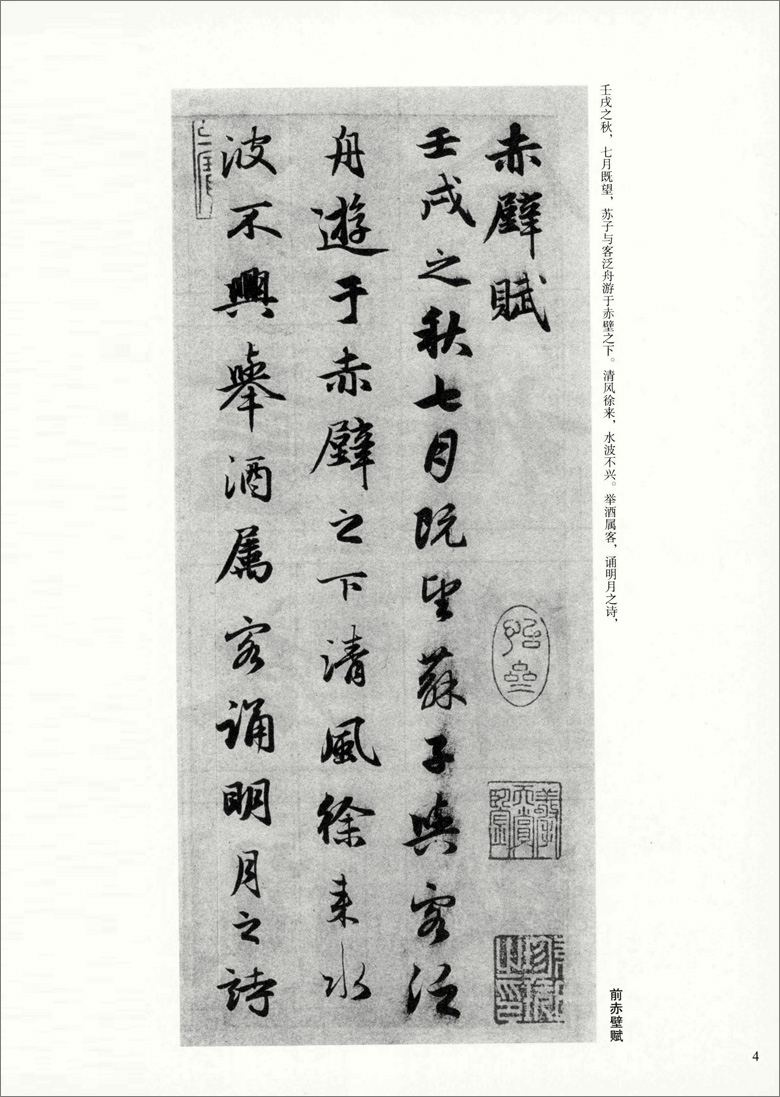 壬戌之秋，七月既望，苏子与客泛舟游于赤壁之下。清风徐来，水波不兴。举酒属客，诵明月之诗，
赤壁賦
壬戌之秋七月既望蘇子與客泛
舟遊于赤壁之下清風徐来水
波不興舉酒屬客誦明月之詩
前赤壁赋
4